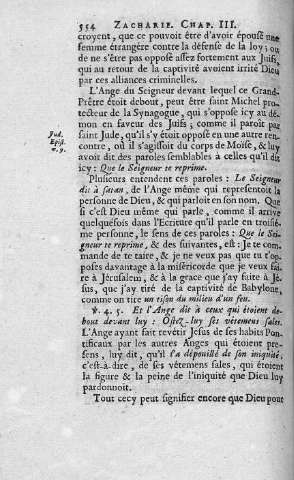 554 ZACHARIE. CHAP. III.
croyent, que ce pouvoit être d'avoir épousé une
femme étrangére contre la défense de la loy; ou
de ne s'être pas opposé assez fortement aux Juifs,
qui au retour de la captivité avoient irrité Dieu
par ces alliances criminelles.
L'Ange du Seigneur devant lequel ce Grand-
Prêtre étoit debout, peut être saint Michel pro-
tecteur de la Synagogue, qui s'opposa icy au dé-
mon en faveur des Juifs; comme il paroît par
Jud. Epist. v. 9.
saint Jude, qu'il s'y étoit opposé en une autre ren-
contre, où il s'agissoit du corps de Moïse, & luy
avoit dit des paroles semblables à celles qu'il dit
icy: Que le Seigneur te reprime.
Plusieurs entendent ces paroles: Le Seigneur
dit à satan, de l'Ange même qui representoit la
personne de Dieu, & qui parloit en son nom. Que
si c'est Dieu même qui parle, comme il arrive
quelquefois dans l'Ecriture qu'il parle en troisié-
me personne, le sens de ces paroles: Que le Sei-
gneur te reprime, & des suivantes, est: Je te com-
mande de te taire, & je ne veux pas que tu t'op-
poses davantage à la misericorde que je veux fai-
re à Jérusalem, & à la grace que j'ay faite à Jé-
sus, que j'ay tiré de la captivité de Babylone,
comme on tire un tison du milieu d'un feu.
℣. 4. 5. Et l'Ange dit à ceux qui étoient de-
bout devant luy: Ostez-luy ses vêtemens sales.
L'Ange ayant fait revêtir Jesus de ses habits Pon-
tificaux par les autres Anges qui étoient pre-
sens, luy dit, qu'il l'a dépouillé de son iniquité,
c'est-à-dire, de ses vêtemens sales, qui étoient
la figure & la peine de l'iniquité que Dieu luy
pardonnoit.
Tout cecy peut signifier encore que Dieu pour